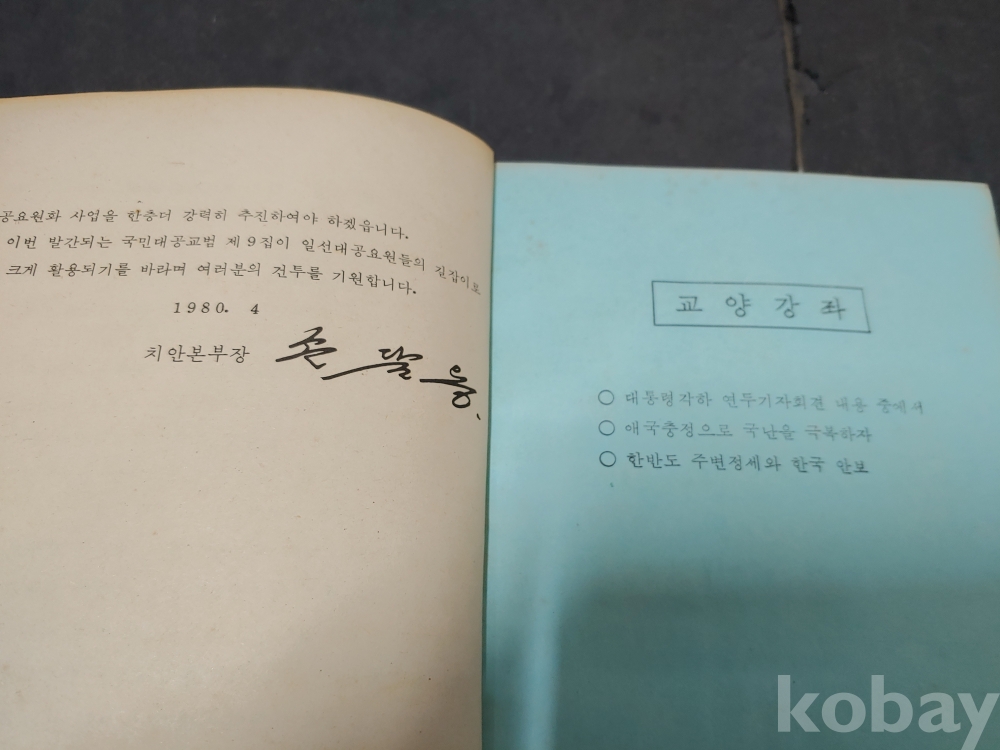 공요원화 사업을 한층더 강력히 추진하여야 하겠읍니다.
이번 발간되는 국민대공교범 제9집이 일선대공요원들의 길잡이로
크게 활용되기를 바라며 여러분의 건투를 기원합니다.
1980. 4
치안본부장 손달용
교양강좌
○ 대통령각하 연두기자회견 내용 중에서
○ 애국충정으로 국난을 극복하자
○ 한반도 주변정세와 한국 안보
kobay